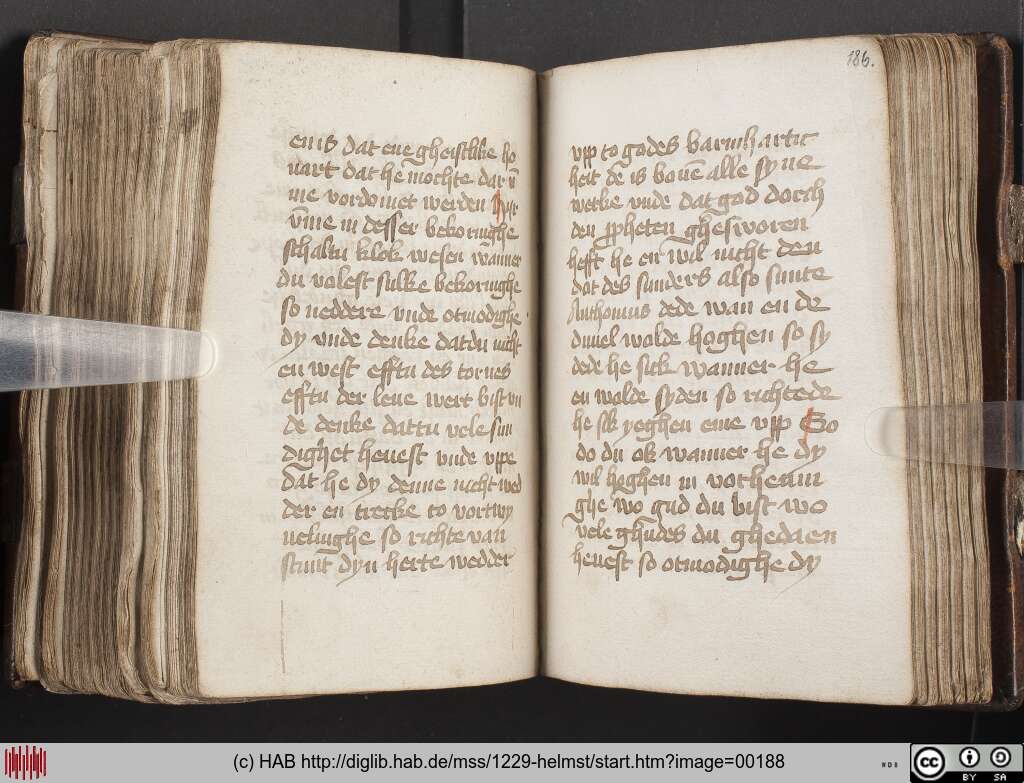 en is dat ene gheistlike ho
uart dat he mochte dar v̄m
me vordomet werden Hir
v̄me in desser bekoringhe
schaltu klok wesen wanner
du volest sulke bekoringhe
so neddere vnde otmodighe
dy vnde denke dat du nicht
en west efftu des tornes
efftu der leue wert bist vn
de denke dattu vele sun
dighet heuest vnde vppe
dat he dy denne nicht wed
der en trecke to vortwy
uelinghe so richte van
stunt dyn herte wedder
186.
vpp to godes barmhartic
heit de is bouē alle syne
werke vnde dat god dorch
den ppheten ghesworen
hefft he en wil nicht den
dot des sunders also sunte
Anthonius dede wan en de
duuel wolde hoghen so sy
dede he sick wanner he
en wolde syden so richtede
he sik yeghen eme vpp So
do du ok wanner he dy
wil hoghen in vorheuin
ghe wo gud du bist wo
vele ghudes du ghedaen
heuest so otmodighe dy
(c) HAB http://diglib.hab.de/mss/1229-helmst/start.htm?image=00188
WDB
cc BY SA